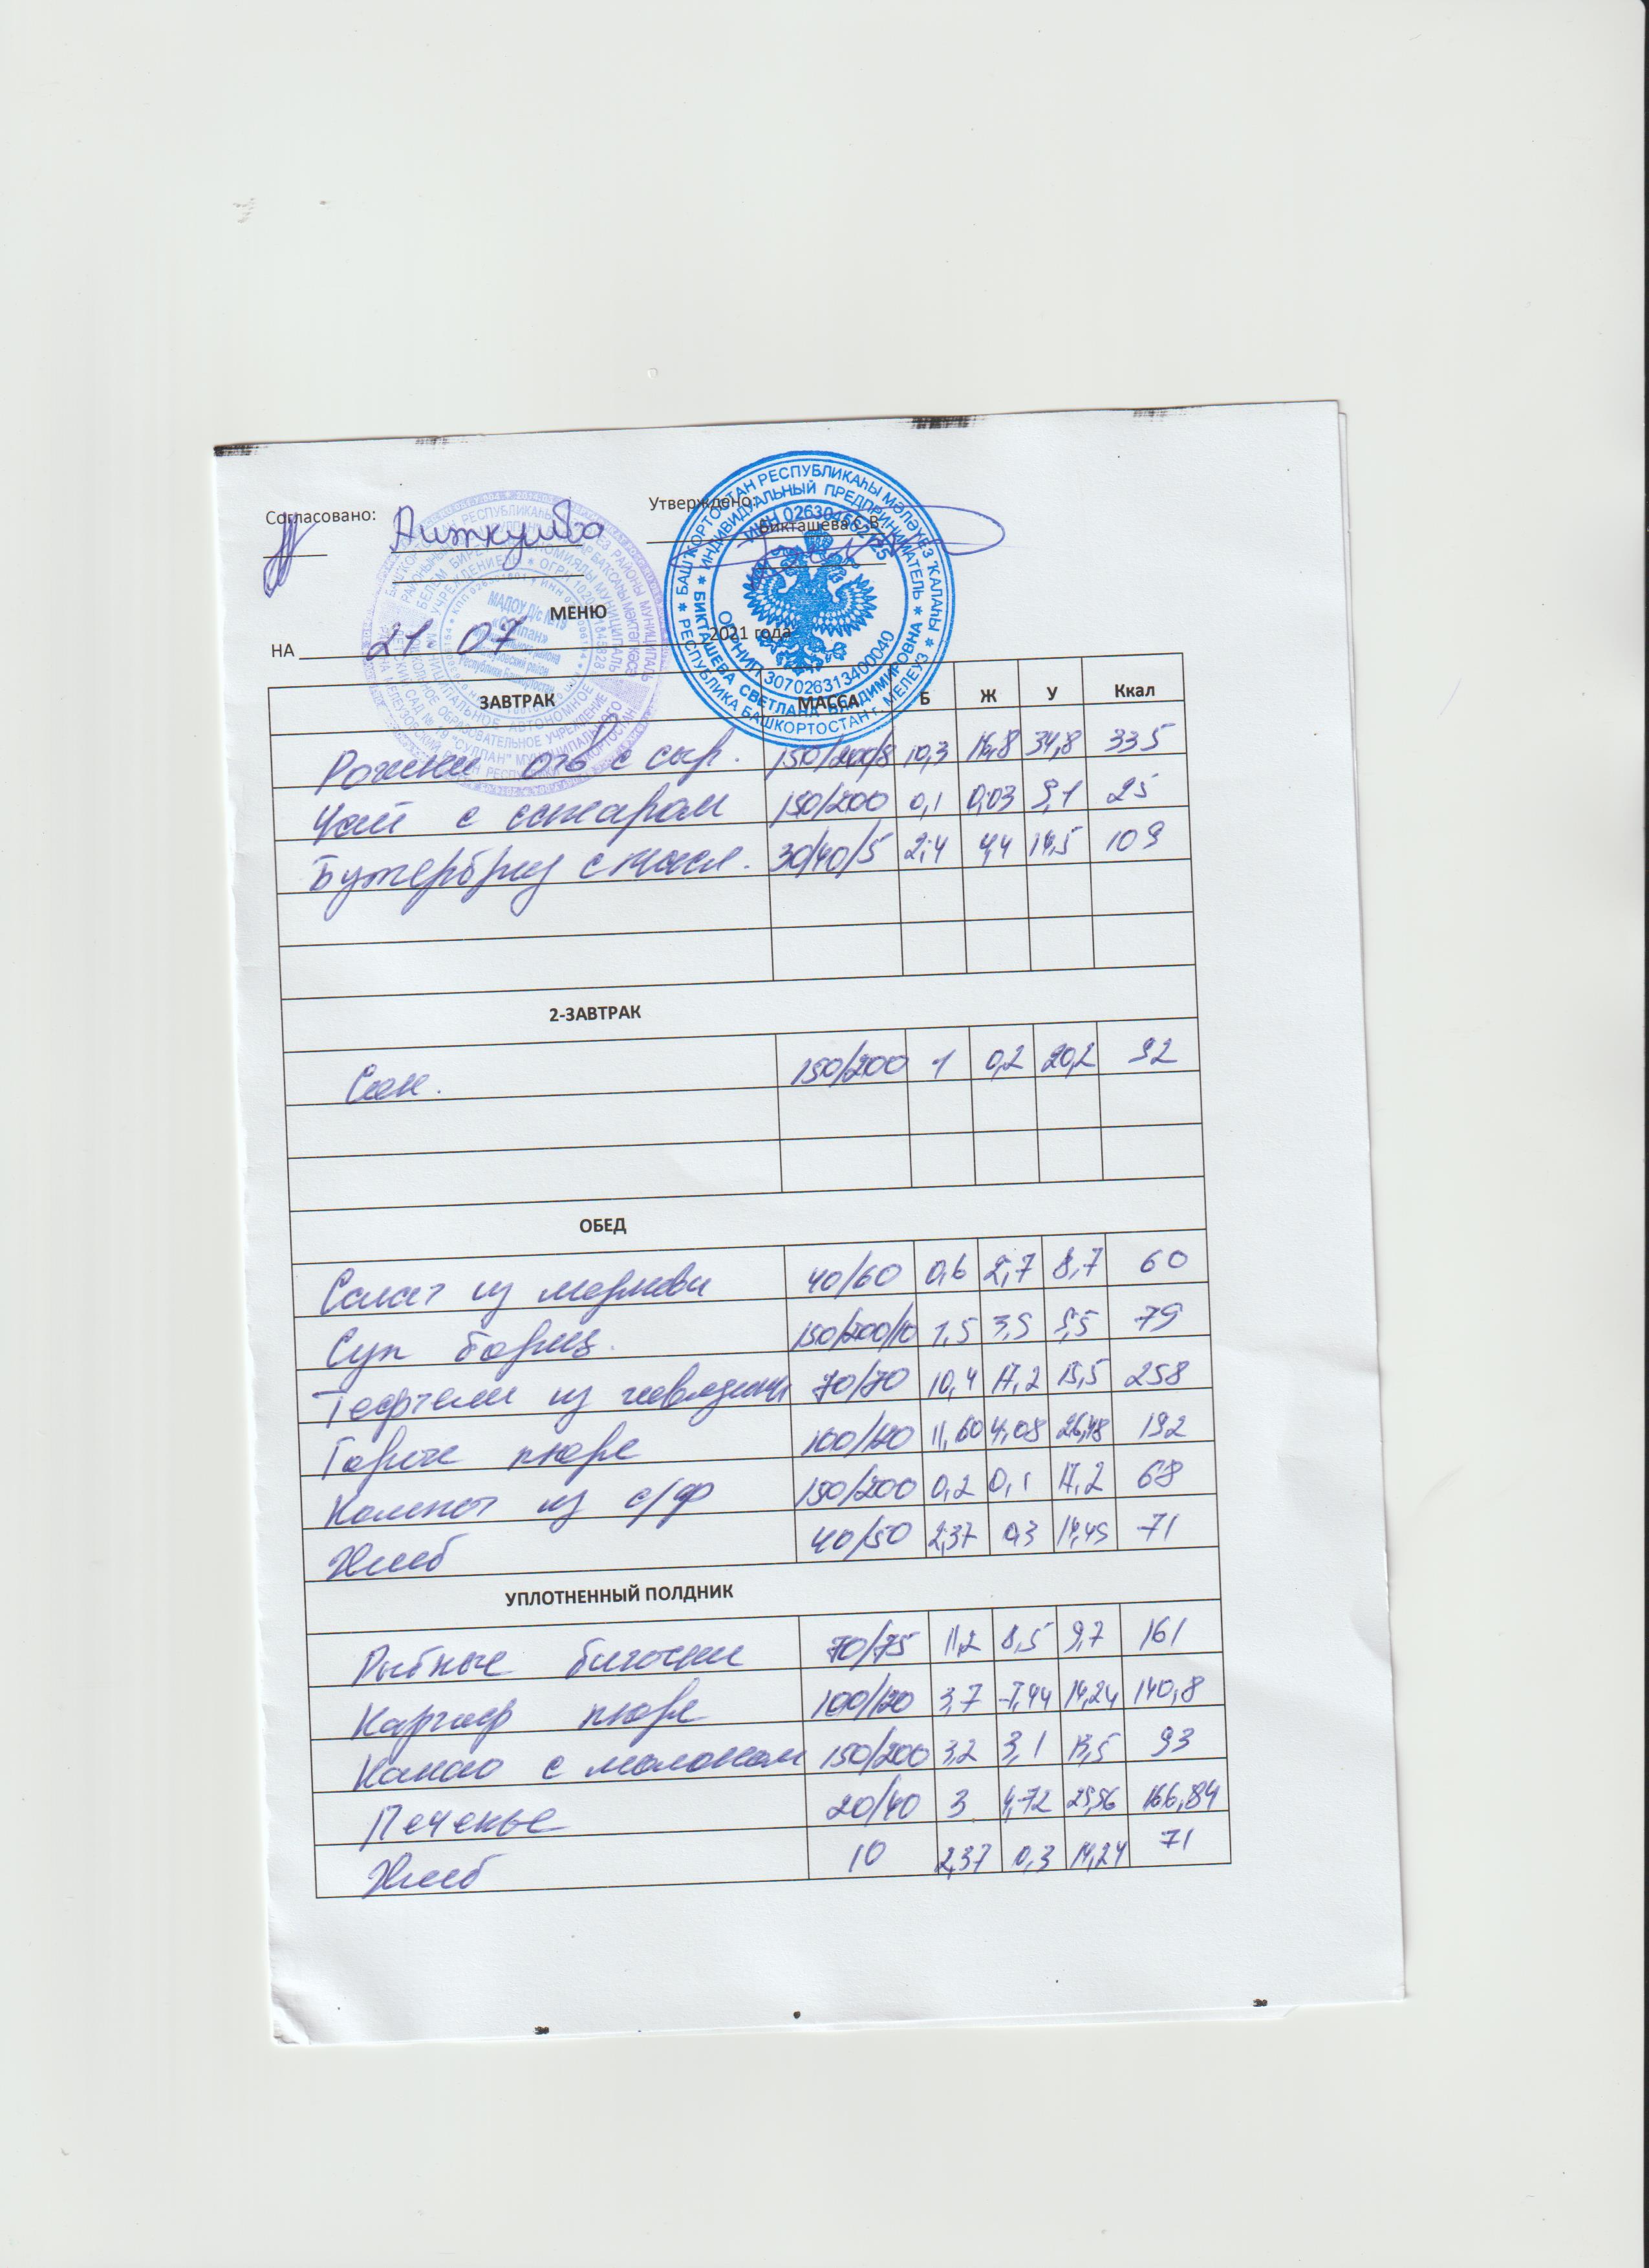 Согласовано: Утверждено:
Биктачева С.В.
МЕНЮ
НА 21 07 2021 года
ЗАВТРАК МАССА Б Ж У Ккал
Рожки отв с сыр. 150/200/8 10,3 34,8 335
Чай с сахаром 150/200 0,1 0,03 9,1 25
Бутерброд с масл. 30/40/5 2,4 4,4 14,5 109
2-ЗАВТРАК
Сок. 150/200 1 0,2 20,2 92
ОБЕД
Салат из моркови 40/60 0,6 2,7 8,7 60
Суп борщ. 150/200/10 1,5 3,9 5,5 79
Тефтели из говядины 70/70 10,4 17,2 15,5 258
Горох пюре 100/120 11,60 4,08 26,48 192
Компот из с/ф 150/200 0,2 0,1 17,2 68
Хлеб 40/50 2,37 0,3 14,49 71
УПЛОТНЕННЫЙ ПОЛДНИК
Рыбные биточки 70/75 11,2 8,5 9,7 161
Картоф пюре 100/120 3,7 7,44 14,24 140,8
Какао с молоком 150/200 3,2 3,1 13,5 93
Печенье 20/40 3 4,72 29,56 166,84
Хлеб 10 2,37 0,3 14,24 71
БАШҠОРТОСТАН РЕСПУБЛИКАҺЫ МӘЛӘҮЕЗ ҠАЛАҺЫ
РЕСПУБЛИКА БАШКОРТОСТАН г. МЕЛЕУЗ
ИНДИВИДУАЛЬНЫЙ ПРЕДПРИНИМАТЕЛЬ
БИКТАШЕВА СВЕТЛАНА ВЛАДИМИРОВНА
ОГРНИП 307026313400040